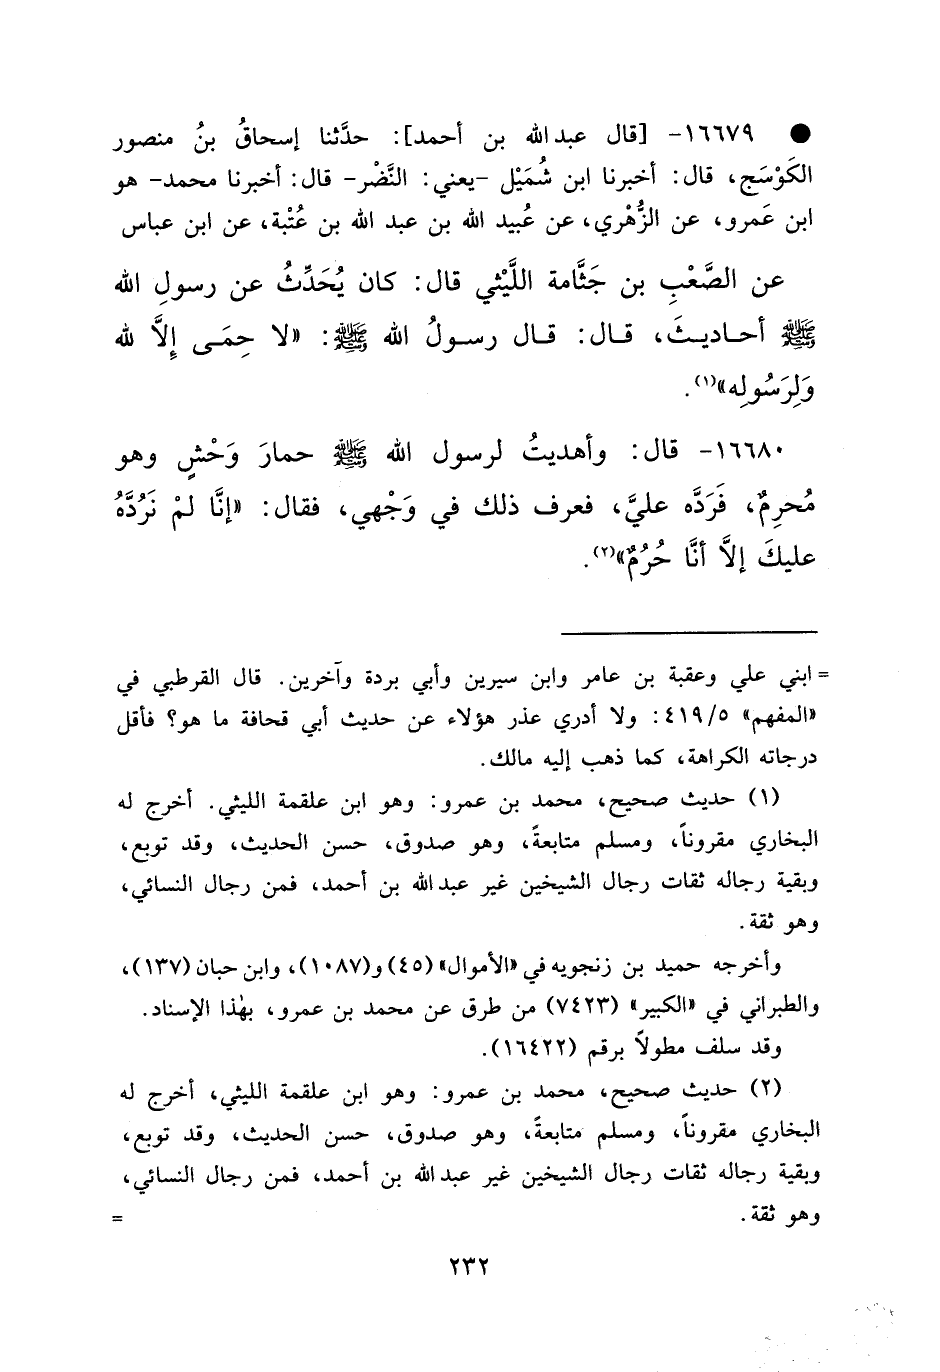 ● ١٦٦٧٩- [قال عبد الله بن أحمد]: حدَّثنا إسحاقُ بنُ منصور
الكَوْسَج، قال: أخبرنا ابن شُمَيْل -يعني: النَّضْر- قال: أخبرنا محمد- هو
ابن عَمرو، عن الزُّهْري، عن عُبيد الله بن عبد الله بن عُتْبة، عن ابن عباس
عن الصَّعْبِ بن جَثَّامة اللَّيْثي قال: كان يُحَدِّثُ عن رسولِ الله
ﷺ أحـاديـثَ، قـال: قـال رسـولُ الله ﷺ: «لا حِمَـى إِلاَّ لله
وَلِرَسُولِه»(١).
١٦٦٨٠- قال: وأهديتُ لرسول الله ﷺ حمارَ وَحْشٍ وهو
مُحرِمٌ، فَرَدَّه عليَّ، فعرف ذلك في وَجْهي، فقال: «إنَّا لَمْ نَرُدَّهُ
عليكَ إلاَّ أنَّا حُرُمٌ»(٢).
= ابني علي وعقبة بن عامر وابن سيرين وأبي بردة وآخرين. قال القرطبي في
«المفهم» ٤١٩/٥: ولا أدري عذر هؤلاء عن حديث أبي قحافة ما هو؟ فأقل
درجاته الكراهة، كما ذهب إليه مالك.
(١) حديث صحيح، محمد بن عمرو: وهو ابن علقمة الليثي. أخرج له
البخاري مقروناً، ومسلم متابعةً، وهو صدوق، حسن الحديث، وقد توبع،
وبقية رجاله ثقات رجال الشيخين غير عبد الله بن أحمد، فمن رجال النسائي،
وهو ثقة.
وأخرجه حميد بن زنجويه في «الأموال» (٤٥) و(١٠٨٧)، وابن حبان (١٣٧)،
والطبراني في «الكبير» (٧٤٢٣) من طرق عن محمد بن عمرو، بهٰذا الإسناد.
وقد سلف مطولاً برقم (١٦٤٢٢).
(٢) حديث صحيح، محمد بن عمرو: وهو ابن علقمة الليثي، أخرج له
البخاري مقروناً، ومسلم متابعةً، وهو صدوق، حسن الحديث، وقد توبع،
وبقية رجاله ثقات رجال الشيخين غير عبد الله بن أحمد، فمن رجال النسائي،
وهو ثقة. =
٢٣٢